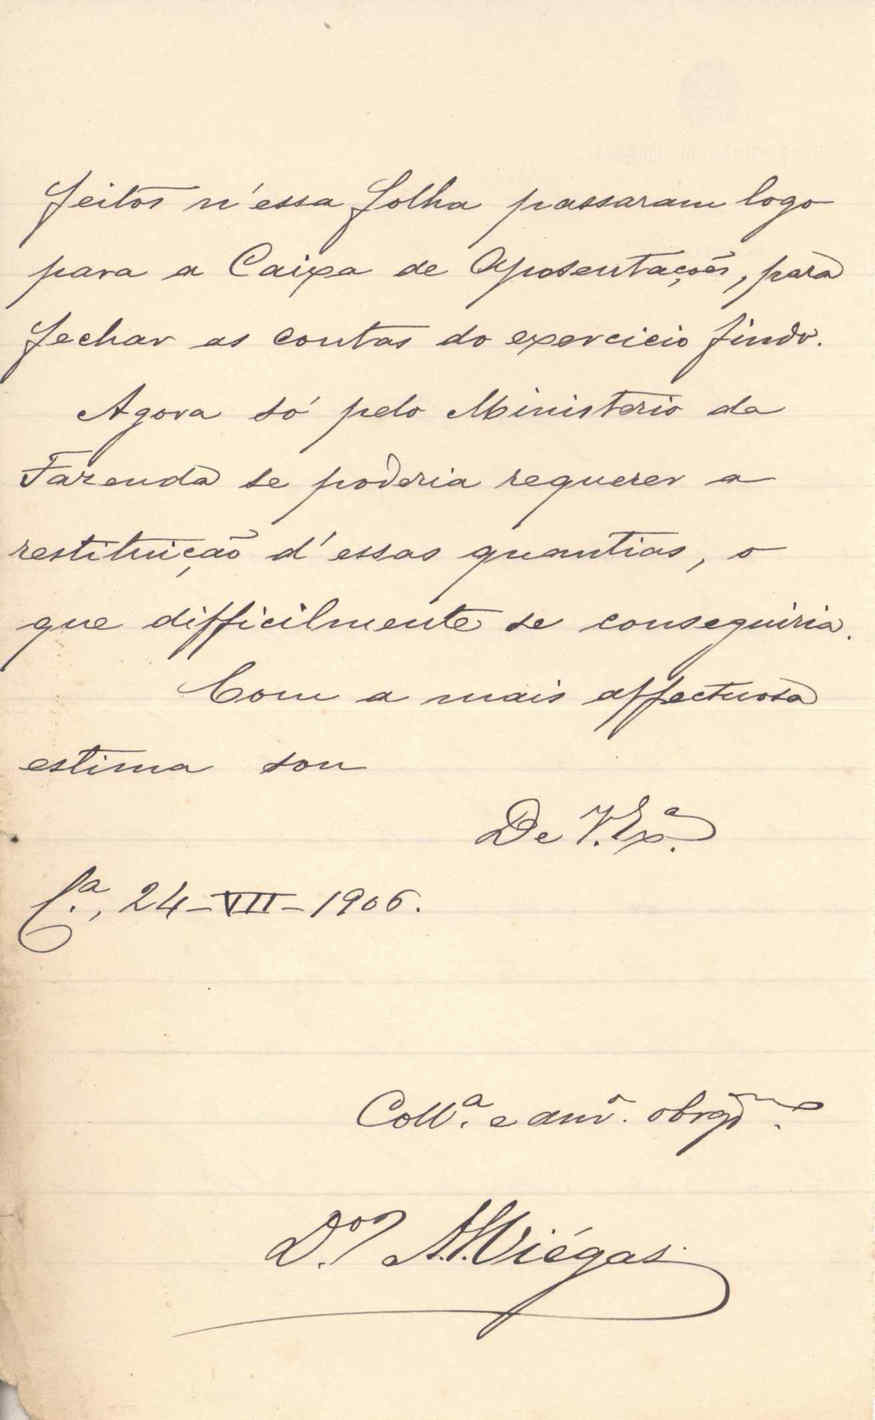 feitos n'essa folha passaram logo
para a Caixa de Aposentações, para
fechar as contas do exercicio findo.
Agora só pelo Ministerio da
Fazenda se poderia requerer a
restituição d'essas quantias, o
que difficilmente se conseguiria.
Com a mais affectuosa
estima sou
De V. Exª.
Cª., 24-VII-1906.
Collª. e amº. obrgdº.
A. Viégas